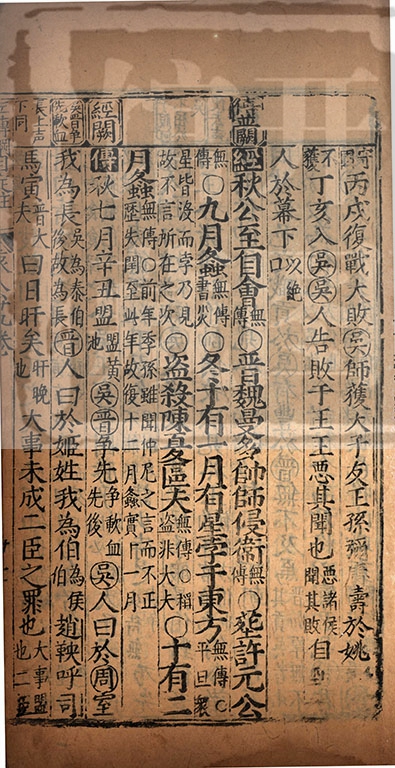 丙戌復戰大敗吳師獲大子友王孫彌庸壽於姚
丁亥入吳吳人告敗于王王惡其聞也惡諸侯聞其敗自
人於幕下以絶口
盜闕
經秋公至自會無傳○晉魏曼多帥師侵衛無傳○葬許元公
無傳○九月螽無傳書災○冬十有一月有星孛于東方無傳○平旦衆
星皆没而孛乃見故不言所在之次○盜殺陳夏區夫無傳○稱盜非大夫○十有二
月螽無傳○前年季孫雖聞仲尼之言而不正歷失閏至此年故復十二月螽實十一月
經闕
傳秋七月辛丑盟盟黄池吳晉爭先爭歃血先後吳人曰於周室
我爲長吳爲泰伯後故爲長晉人曰於姬姓我爲伯爲侯伯趙鞅呼司
馬寅晉大夫曰日旰矣旰晚也大事未成二臣之罪也大事盟也二臣
吳晉爭先歃血
長上聲下同